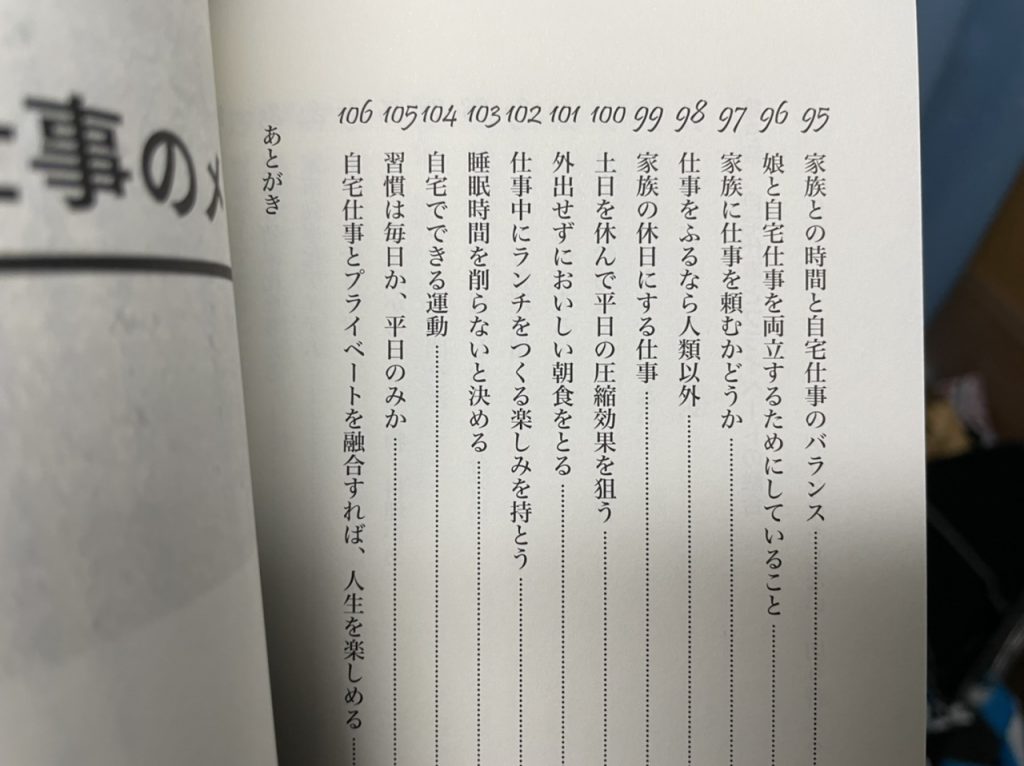 95 家族との時間と自宅仕事のバランス
96 娘と自宅仕事を両立するためにしていること
97 家族に仕事を頼むかどうか
98 仕事をふるなら人類以外
99 家族の休日にする仕事
100 土日を休んで平日の圧縮効果を狙う
101 外出せずにおいしい朝食をとる
102 仕事中にランチをつくる楽しみを持とう
103 睡眠時間を削らないと決める
104 自宅でできる運動
105 習慣は毎日か、平日のみか
106 自宅仕事とプライベートを融合すれば、人生を楽しめる
あとがき
仕事のメ